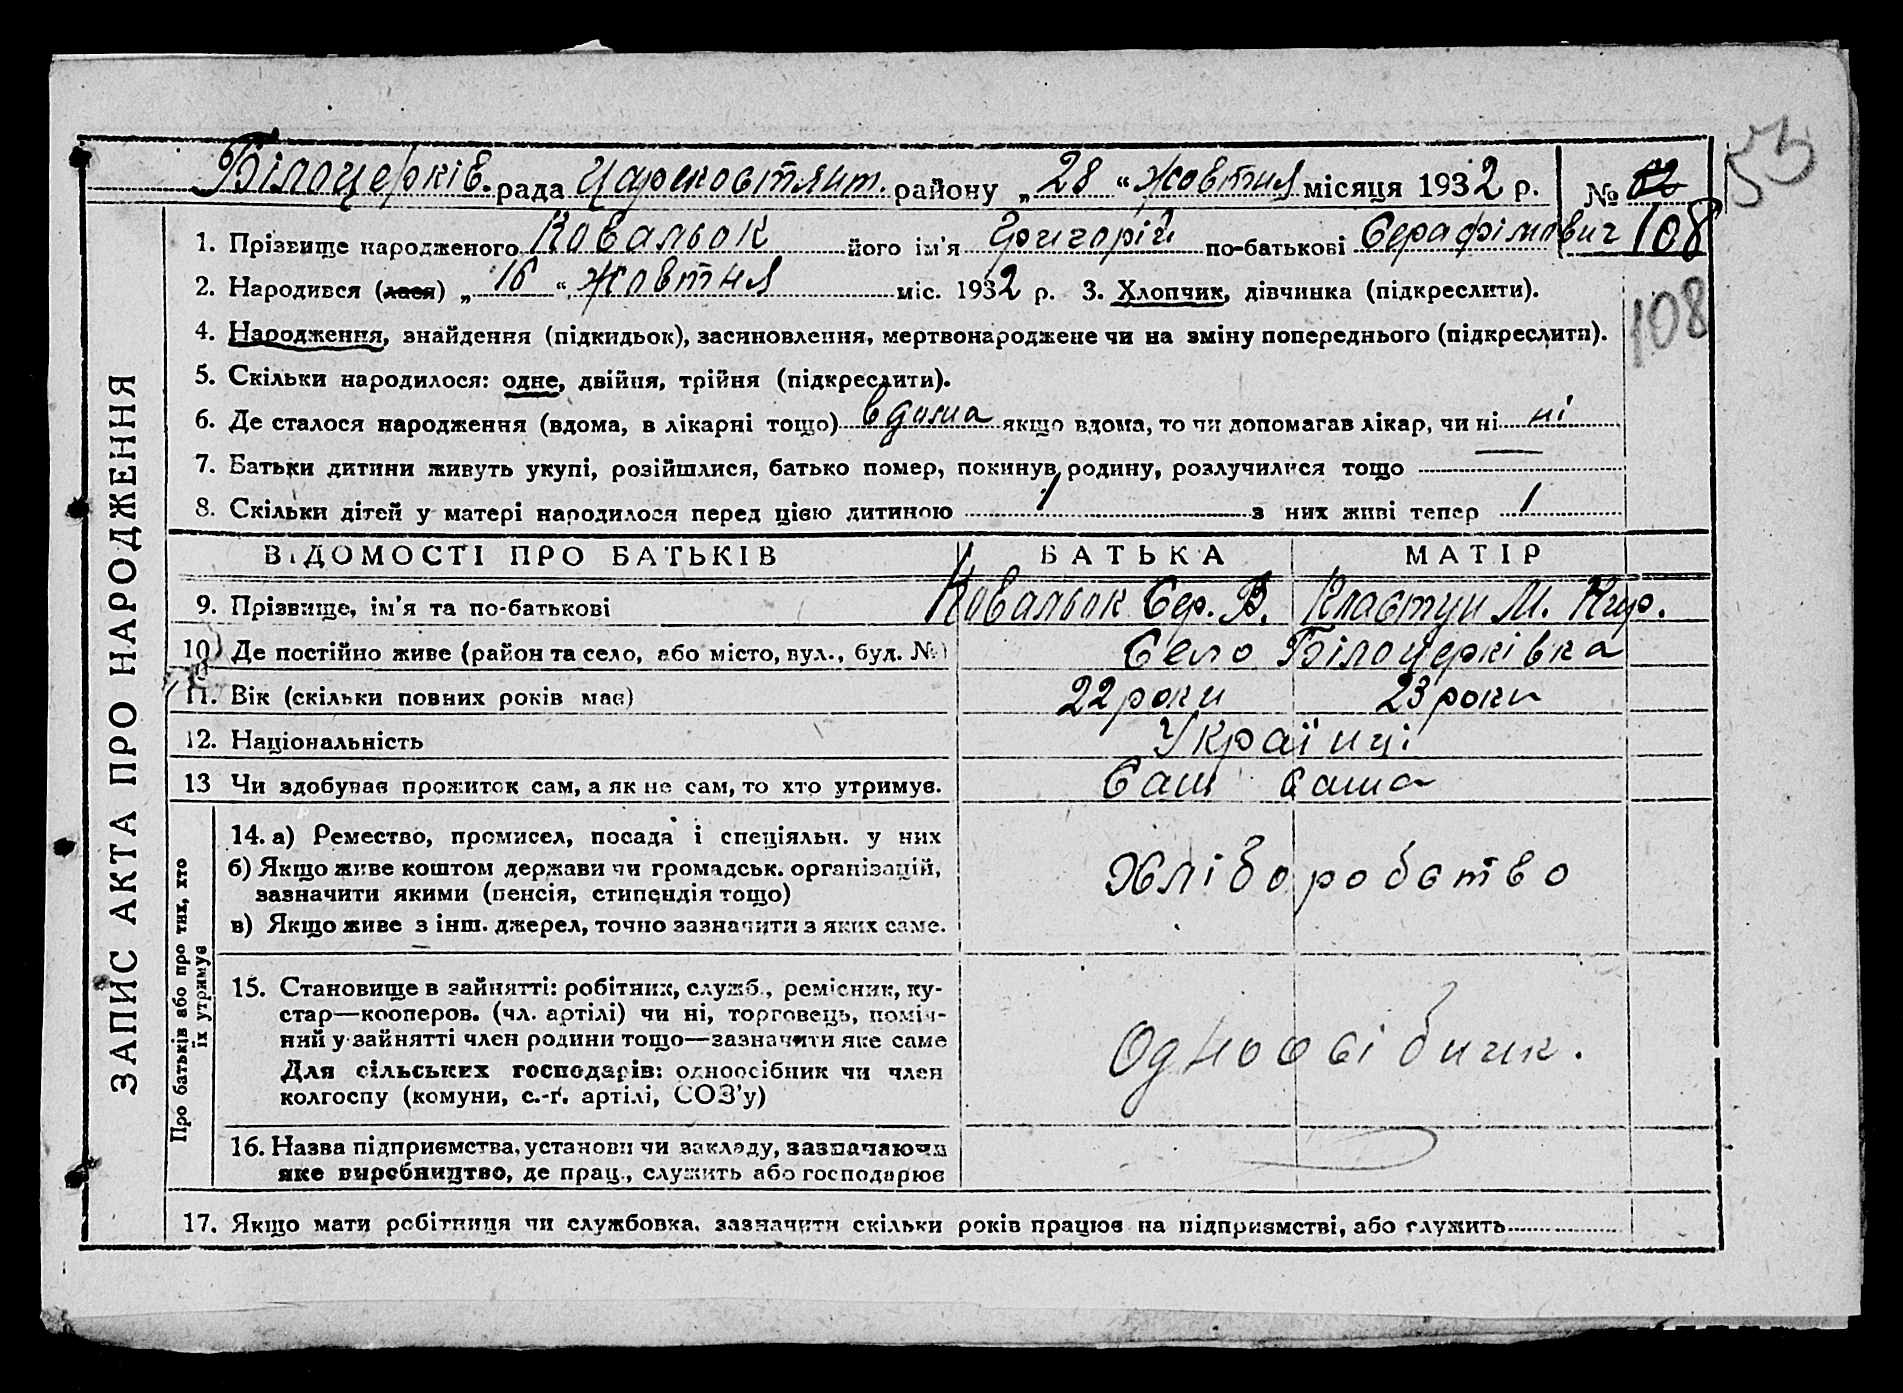 Білоцерків. рада Царекостянт. району „ 28 “ жовтня місяця 1932 р. № 
53
1. Прізвище народженого Ковальок його ім'я Григорій по-батькові Серафімович 108
2. Народився (лася) „ 16 “ жовтня міс. 1932 р. 3. Хлопчик, дівчинка (підкреслити).
108
4. Народження, знайдення (підкидьок), засиновлення, мертвонароджене чи на зміну попереднього (підкреслити).
5. Скільки народилося: одне, двійня, трійня (підкреслити).
6. Де сталося народження (вдома, в лікарні тощо) вдома якщо вдома, то чи допомагав лікар, чи ні ні
7. Батьки дитини живуть укупі, розійшлися, батько помер, покинув родину, розлучилися тощо —
8. Скільки дітей у матері народилося перед цією дитиною 1 з них живі тепер 1
ЗАПИС АКТА ПРО НАРОДЖЕННЯ
ВІДОМОСТІ ПРО БАТЬКІВ БАТЬКА МАТІР
9. Прізвище, ім'я та по-батькові Ковальок Сер. В. Кластун М. Кир.
10) Де постійно живе (район та село, або місто, вул., буд. №) Село Білоцерківка
11. Вік (скільки повних років має) 22 роки 23 роки
12. Національність Українці
13 Чи здобуває прожиток сам, а як не сам, то хто утримує. Сам сама
Про батьків або про тих, хто
їх утримує
14. а) Ремество, промисел, посада і спеціяльн. у них
б) Якщо живе коштом держави чи громадськ. організацій,
зазначити якими (пенсія, стипендія тощо)
в) Якщо живе з інш. джерел, точно зазначити з яких саме.
Хліборобство
15. Становище в зайнятті: робітник, служб., ремісник, ку-
стар—кооперов. (чл. артілі) чи ні, торговець, поміч-
ний у зайнятті член родини тощо—зазначити яке саме
Для сільських господарів: одноосібник чи член
колгоспу (комуни, с.-г. артілі, СОЗ'у)
Одноосібник.
16. Назва підприємства, установи чи закладу, зазначаючи
яке виробництво, де прац., служить або господарює
17. Якщо мати робітниця чи службовка, зазначити скільки років працює на підприємстві, або служить